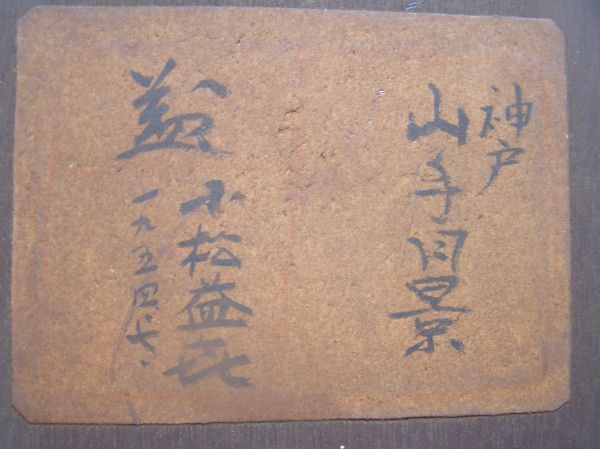 神戸
山手風景
益
小松益㐂
一九五四、七、